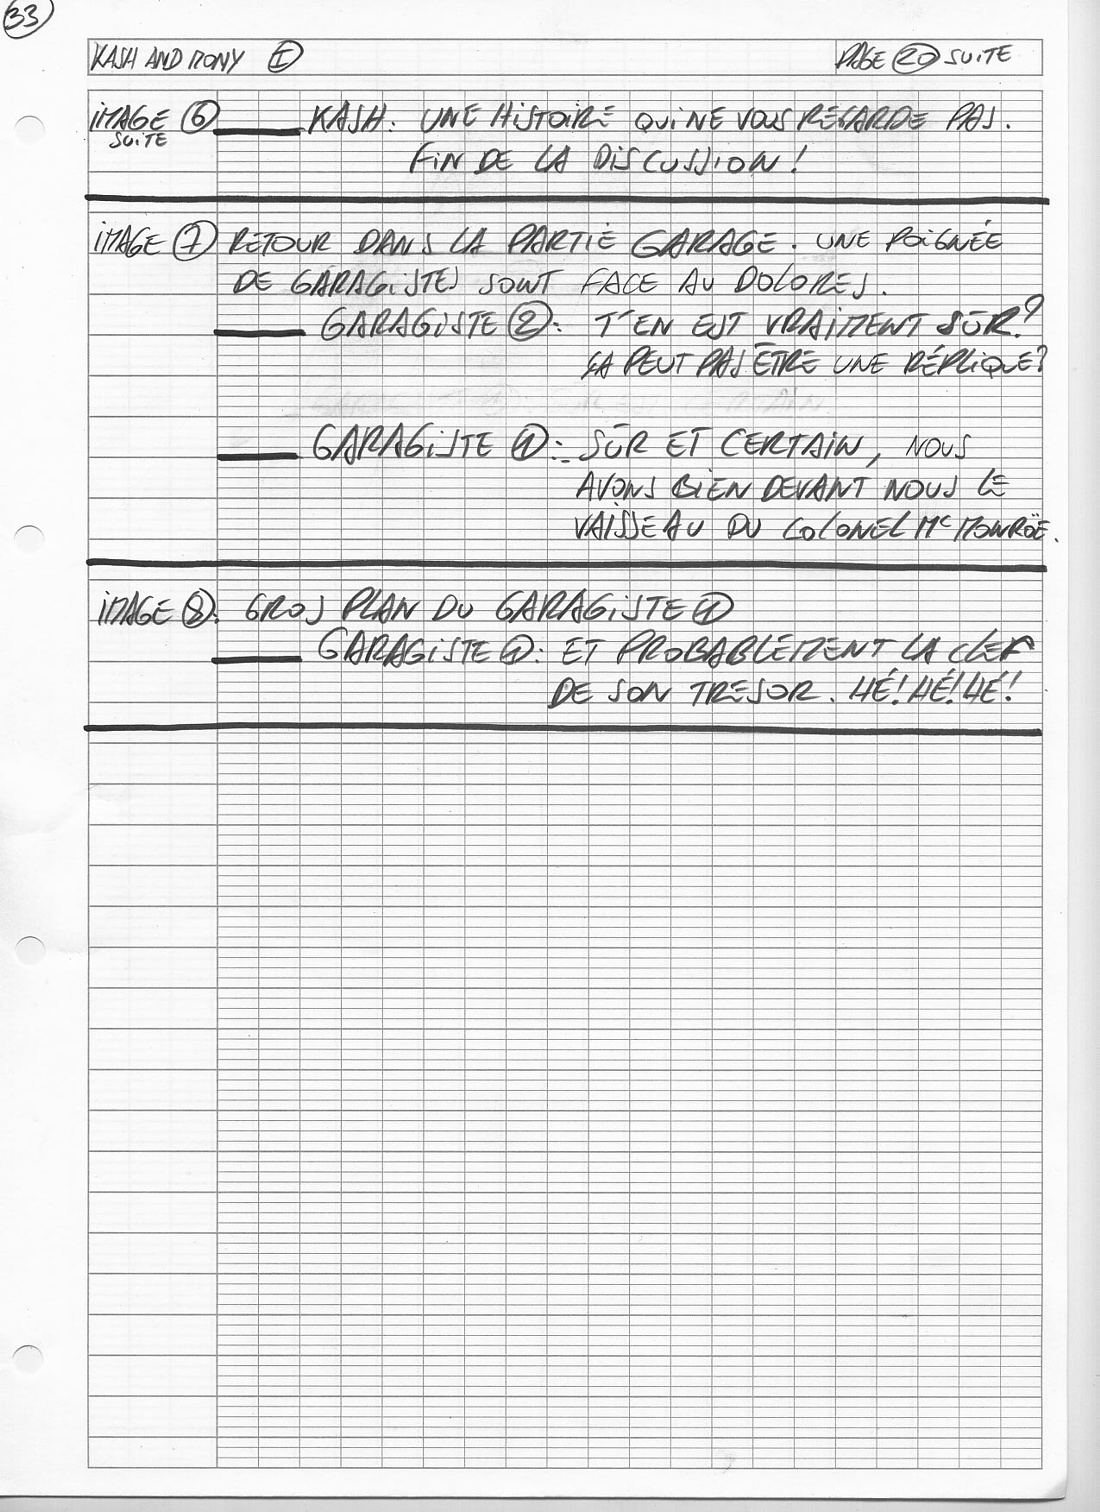 33
KASH AND MONY I PAGE 20 SUITE
IMAGE 6 KASH: UNE HISTOIRE QUI NE VOUS REGARDE PAS.
SUITE
FIN DE LA DISCUSSION !
IMAGE 7 RETOUR DANS LA PARTIE GARAGE. UNE POIGNÉE
DE GARAGISTES SONT FACE AU DOLORES.
GARAGISTE 2: T'EN EST VRAIMENT SÛR?
ÇA PEUT PAS ÊTRE UNE RÉPLIQUE?
GARAGISTE 1: SÛR ET CERTAIN, NOUS
AVONS BIEN DEVANT NOUS LE
VAISSEAU DU COLONEL Mc MONROË.
IMAGE 8: GROS PLAN DU GARAGISTE 1
GARAGISTE 1: ET PROBABLEMENT LA CLEF
DE SON TRESOR. HÉ! HÉ! HÉ!